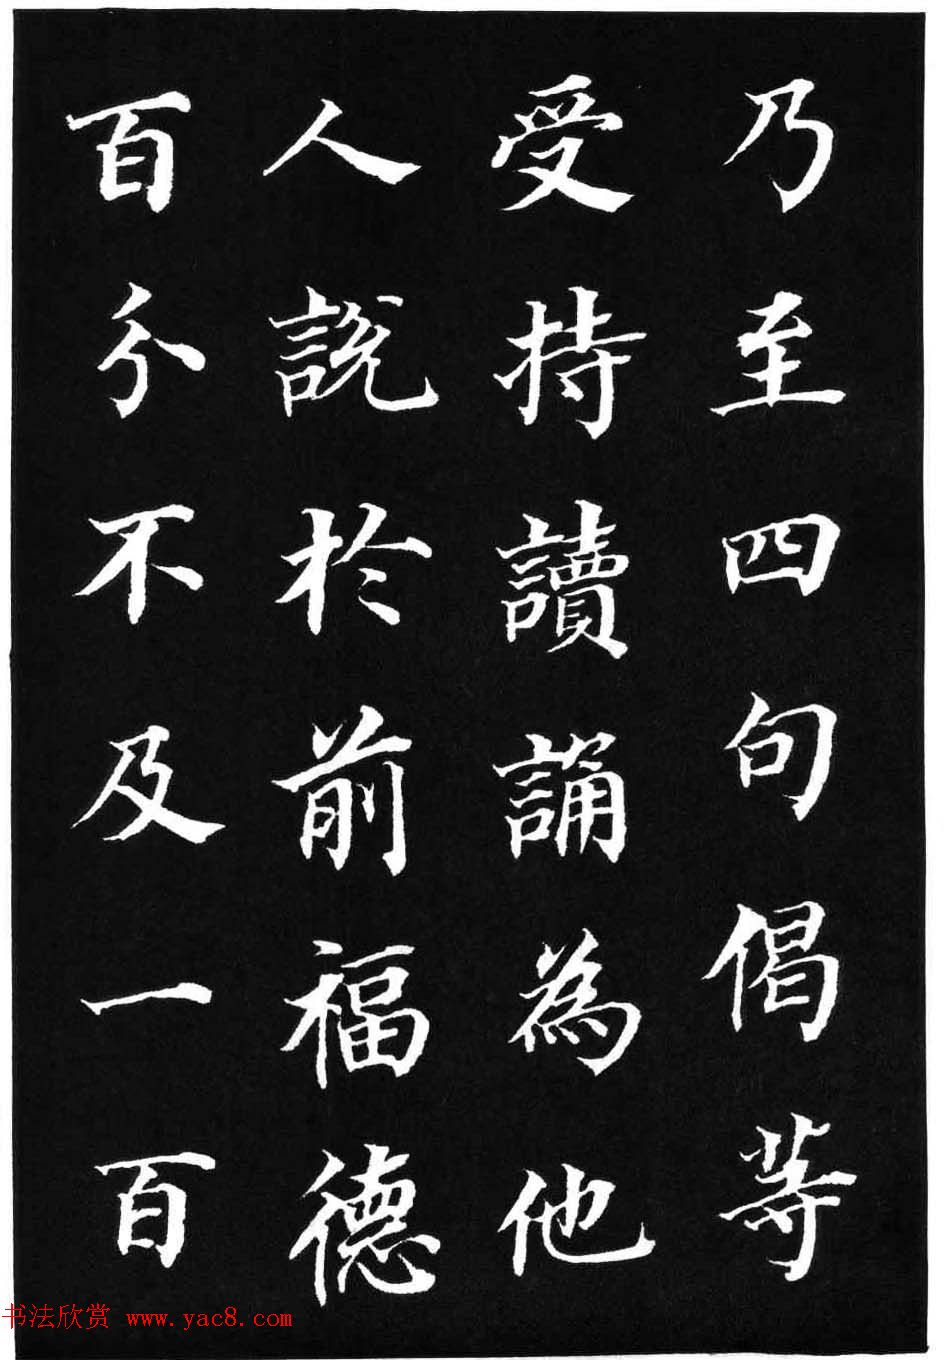 乃至四句偈等
受持讀誦為他
人說於前福德
百分不及一百
书法欣赏 www.yac8.com